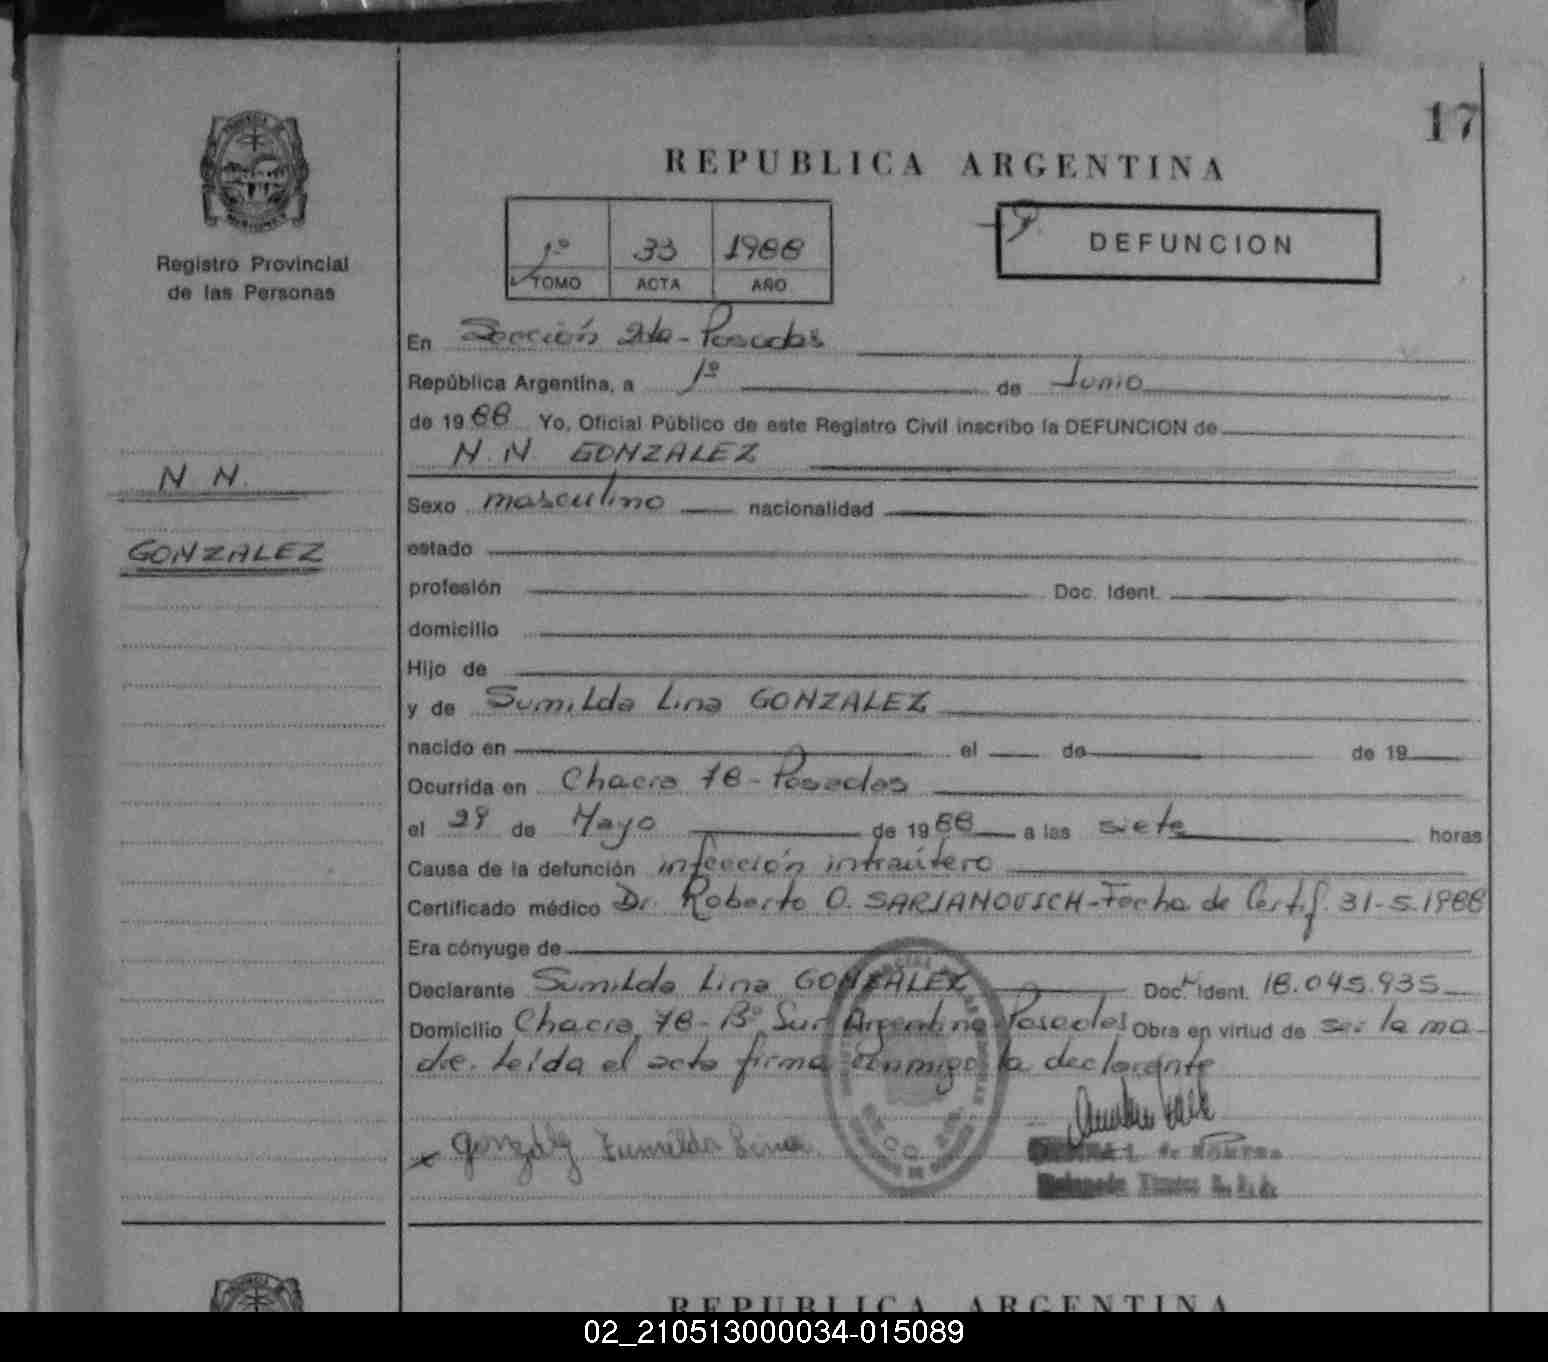 17
REPUBLICA ARGENTINA
1º 33 1988
TOMO ACTA AÑO
DEFUNCION
Registro Provincial
de las Personas
En Sección 2da - Posadas
República Argentina, a 1º de Junio
de 1988 Yo, Oficial Público de este Registro Civil inscribo la DEFUNCION de
N.N. GONZALEZ
N N.
GONZALEZ
Sexo masculino nacionalidad
estado
profesión Doc. Ident.
domicilio
Hijo de
y de Sumilda Lina GONZALEZ
nacido en el de de 19
Ocurrida en Chacra 78 - Posadas
el 29 de Mayo de 1988 a las siete horas
Causa de la defunción infección intraútero
Certificado médico Dr. Roberto O. SARJANOVICH - Fecha de Certif. 31-5-1988
Era cónyuge de
Declarante Sumilda Lina GONZALEZ Doc. Ident. 18.045.935
Domicilio Chacra 78 - Bº Sur Argentino Posadas Obra en virtud de ser la ma-
dre. Leída el acta firma conmigo la declarante
x Gonzalez Sumilda Lina
REPUBLICA ARGENTINA
02_210513000034-015089